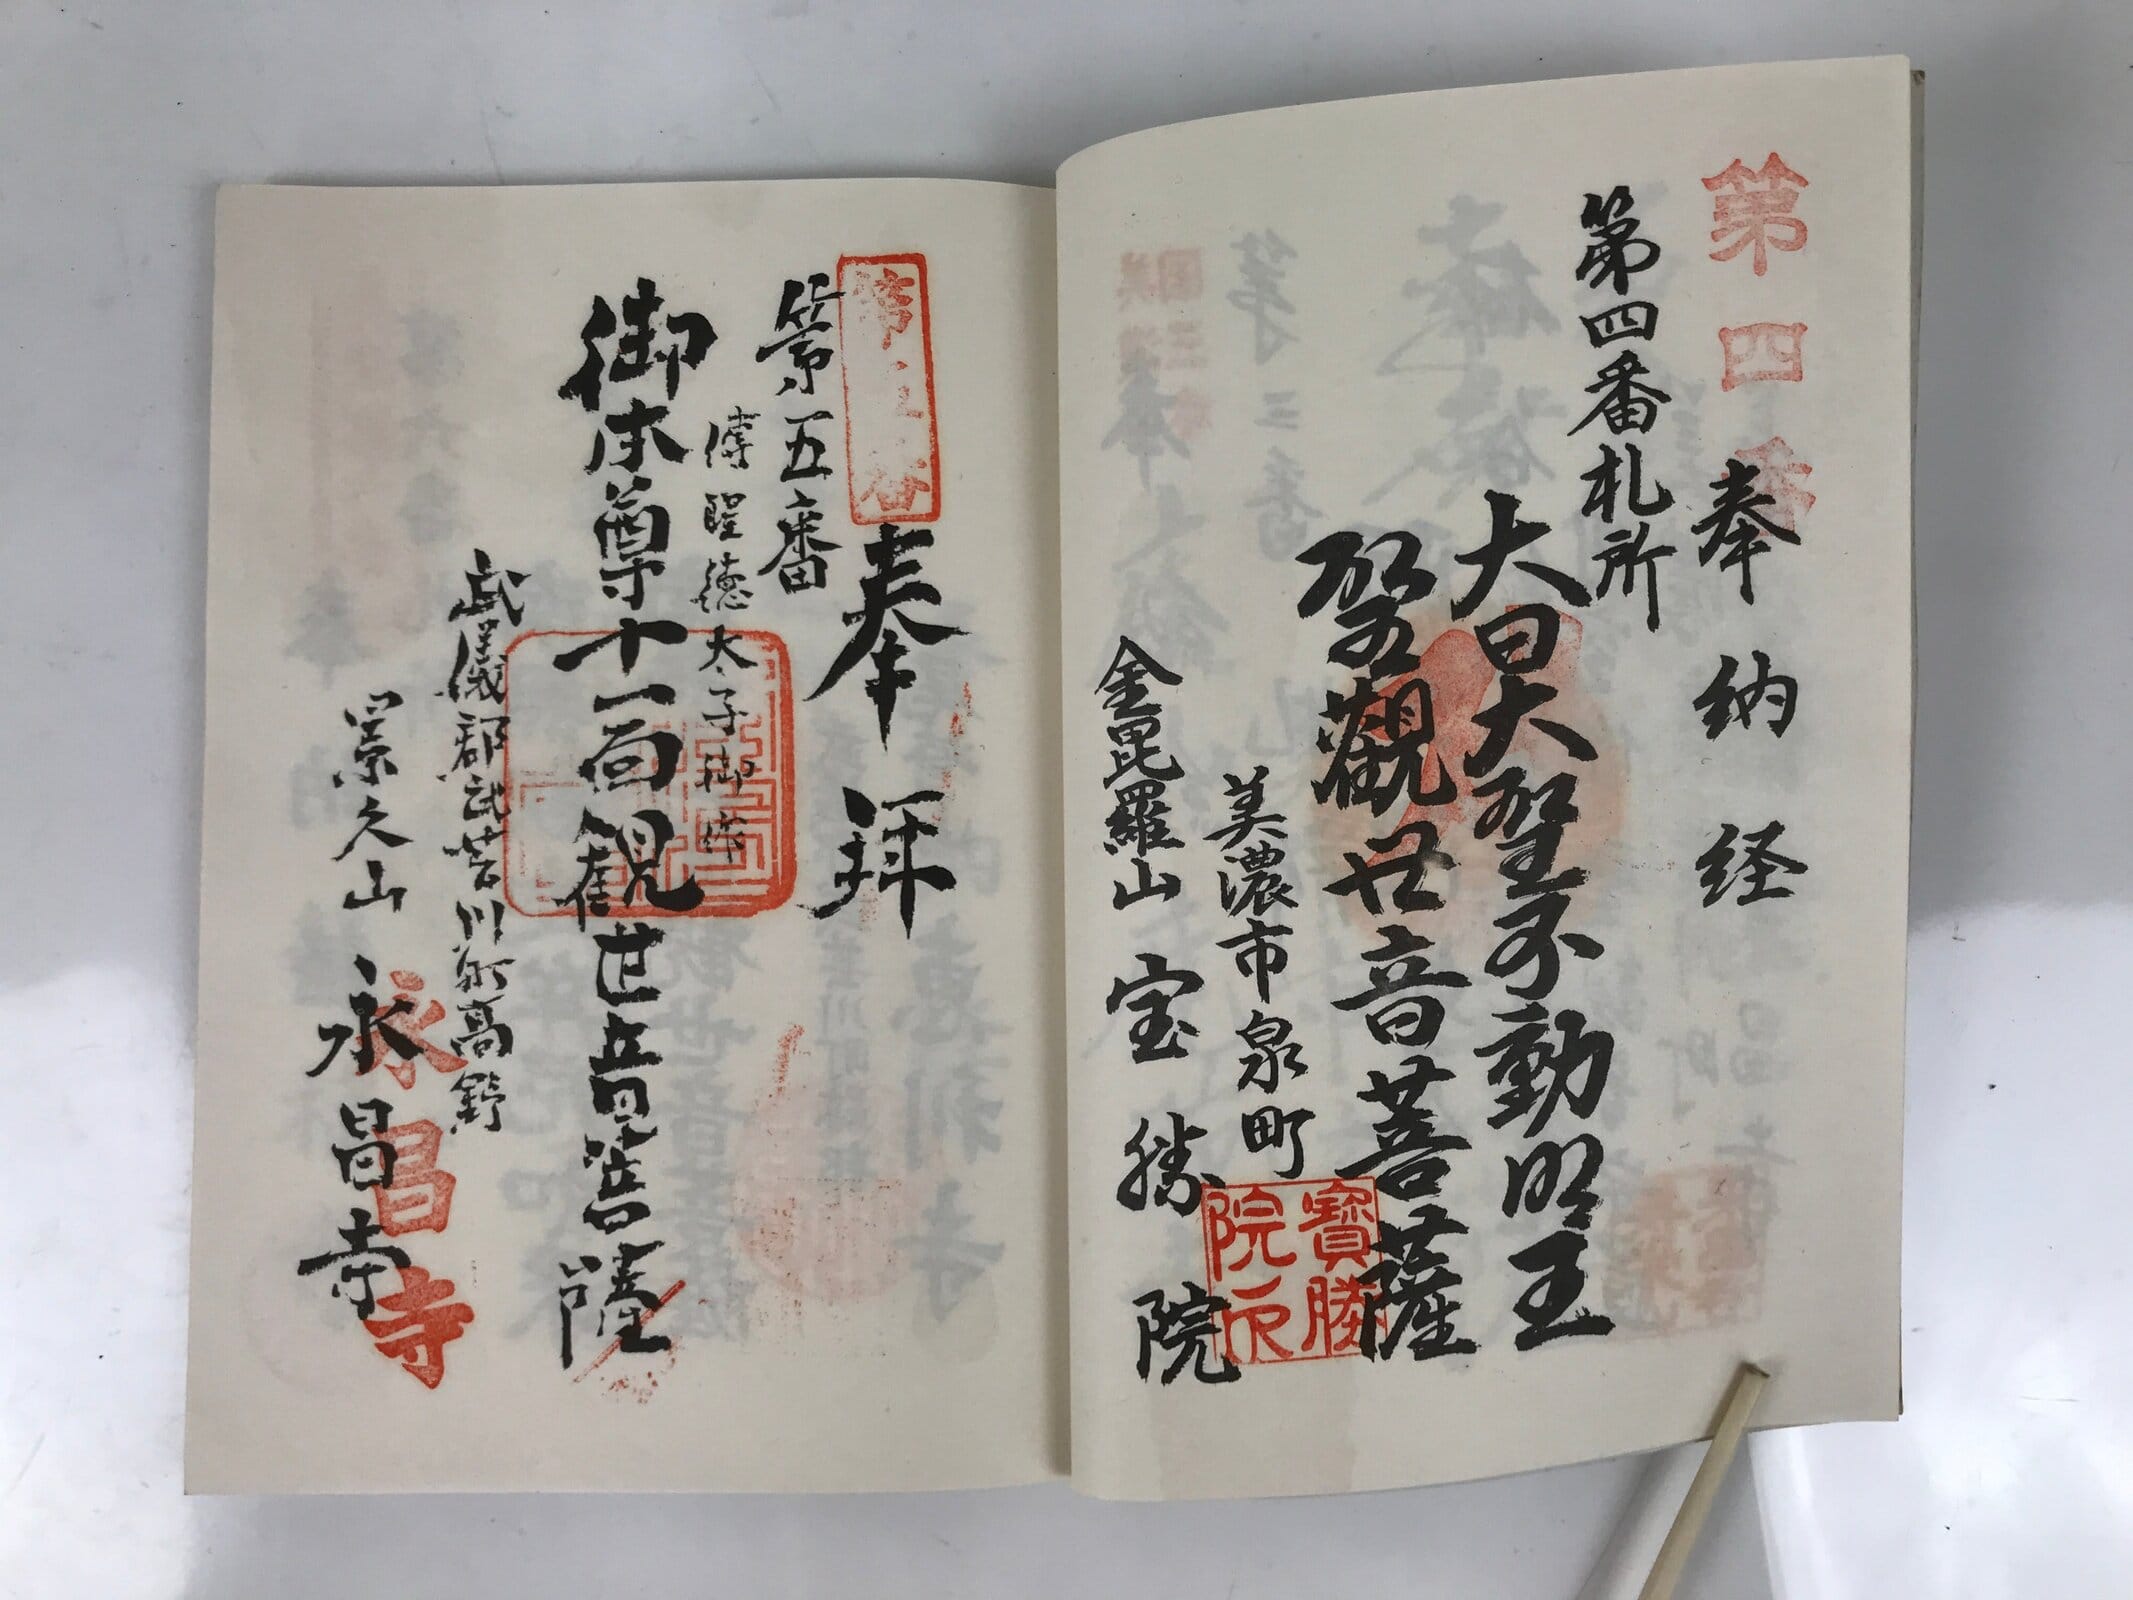 第四番
奉納経
第四番札所
大日大聖不動明王
聖觀世音菩薩
美濃市泉町
金毘羅山 宝勝院
寶勝院印
第五番
奉拝
第五番
傳聖徳太子御作
御本尊十一面観世音菩薩
武儀郡武芸川町高野
景久山 永昌寺
永昌寺